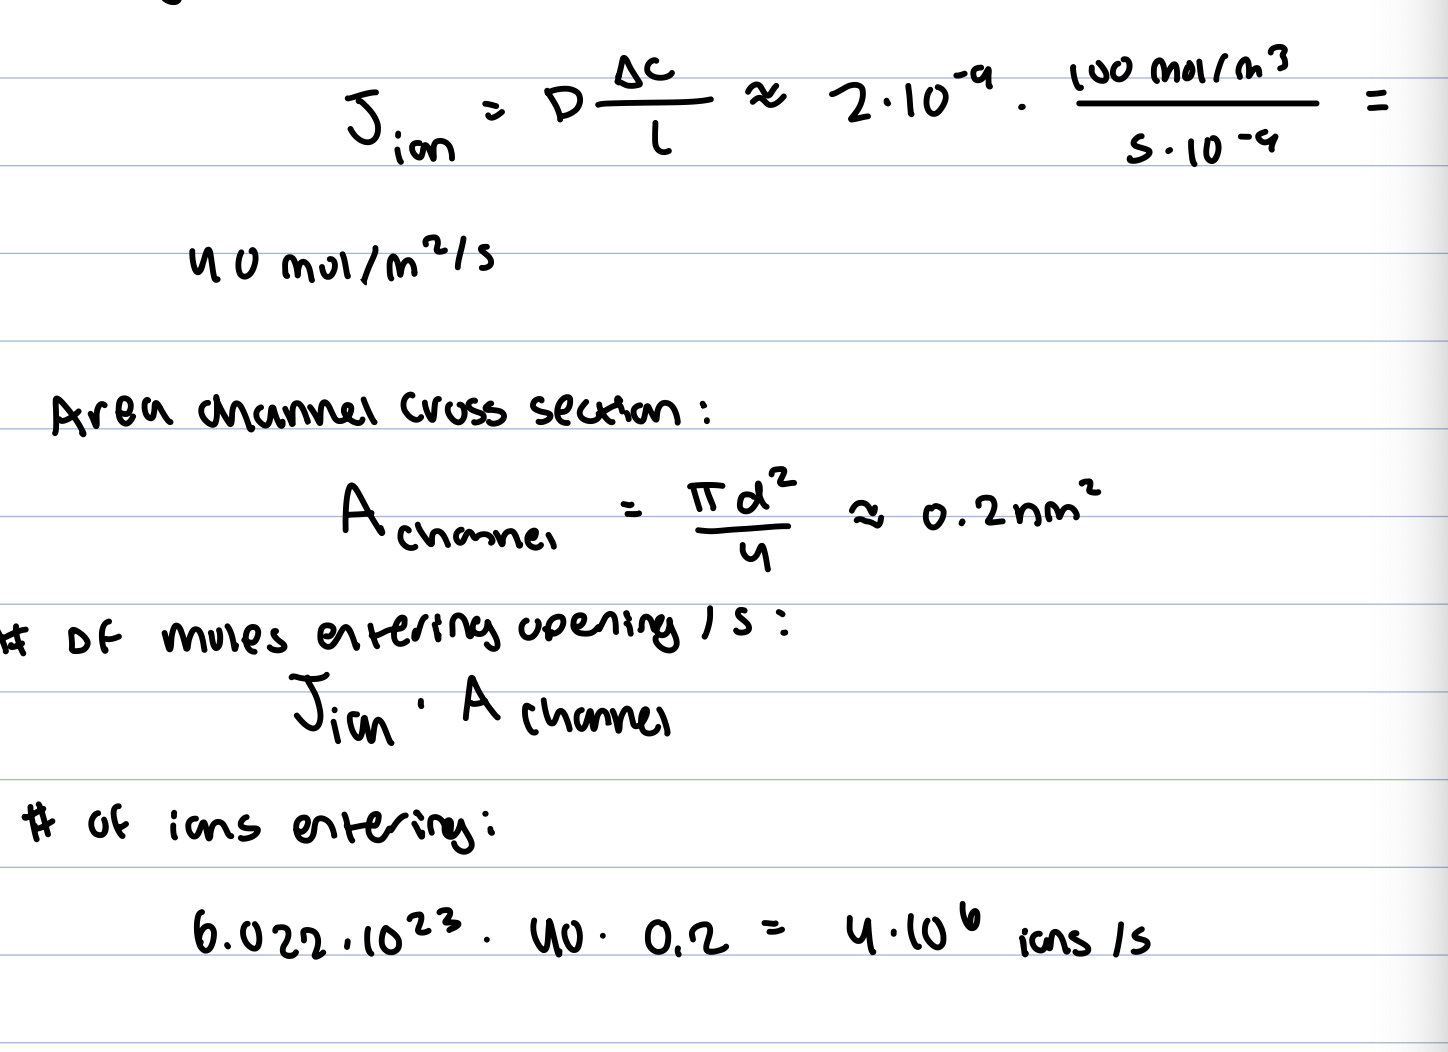 J_ion = D ΔC/L ≈ 2·10^-9 · (100 mol/m^3)/(5·10^-9) =
40 mol/m^2/s
Area channel cross section:
A_channel = πd^2/4 ≈ 0.2 nm^2
# of moles entering opening /s:
J_ion · A_channel
# of ions entering:
6.022·10^23 · 40 · 0.2 = 4·10^6 ions/s